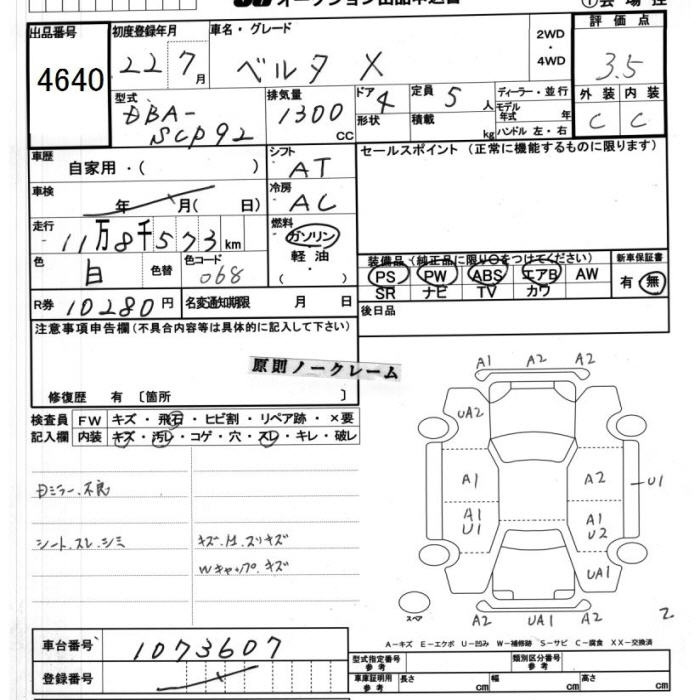 オークション出品申込書
①会場控
出品番号 初度登録年月 車名・グレード 2WD・4WD 評価点
4640 22 7月 ベルタ X 3.5
型式 排気量 ドア形状 定員 人 ディーラー・並行 外装 内装
DBA-SCP92 1300 CC 4 5 積載 kg モデル年式 年 C C
ハンドル 左・右
車歴 自家用・( ) シフト AT セールスポイント (正常に機能するものに限ります)
車検 年 月( 日) 冷房 AC
走行 11万8千573km 燃料 ガソリン 軽油 ( ・ )
色 白 色替 色コード 068
装備品(純正品に限り○をつけてください) 新車保証書
PS PW ABS エアB AW 有・無
SR ナビ TV カワ
R券 10280円 名変通知期限 月 日 後日品
注意事項申告欄(不具合内容等は具体的に記入して下さい)
原則ノークレーム
修復歴 有 〔箇所 〕
検査員記入欄 FW キズ・飛石・ヒビ割・リペア跡・×要
内装 キズ・汚レ・コゲ・穴・スレ・キレ・破レ
Dミラー.不良
シート.スレ.シミ キズ.凹.スリキズ
Wキャップ.キズ
A1 A2 A2
UA2
A1 A2 U1
A1 U1 A1 U2
UA1
スペア A2 UA1 A2 2
A-キズ E-エクボ U-凹み W-補修跡 S-サビ C-腐食 XX-交換済
車台番号 1073607
登録番号
型式指定番号参考 類別区分番号参考
車庫証明用参考 長さ cm 幅 cm 高さ cm